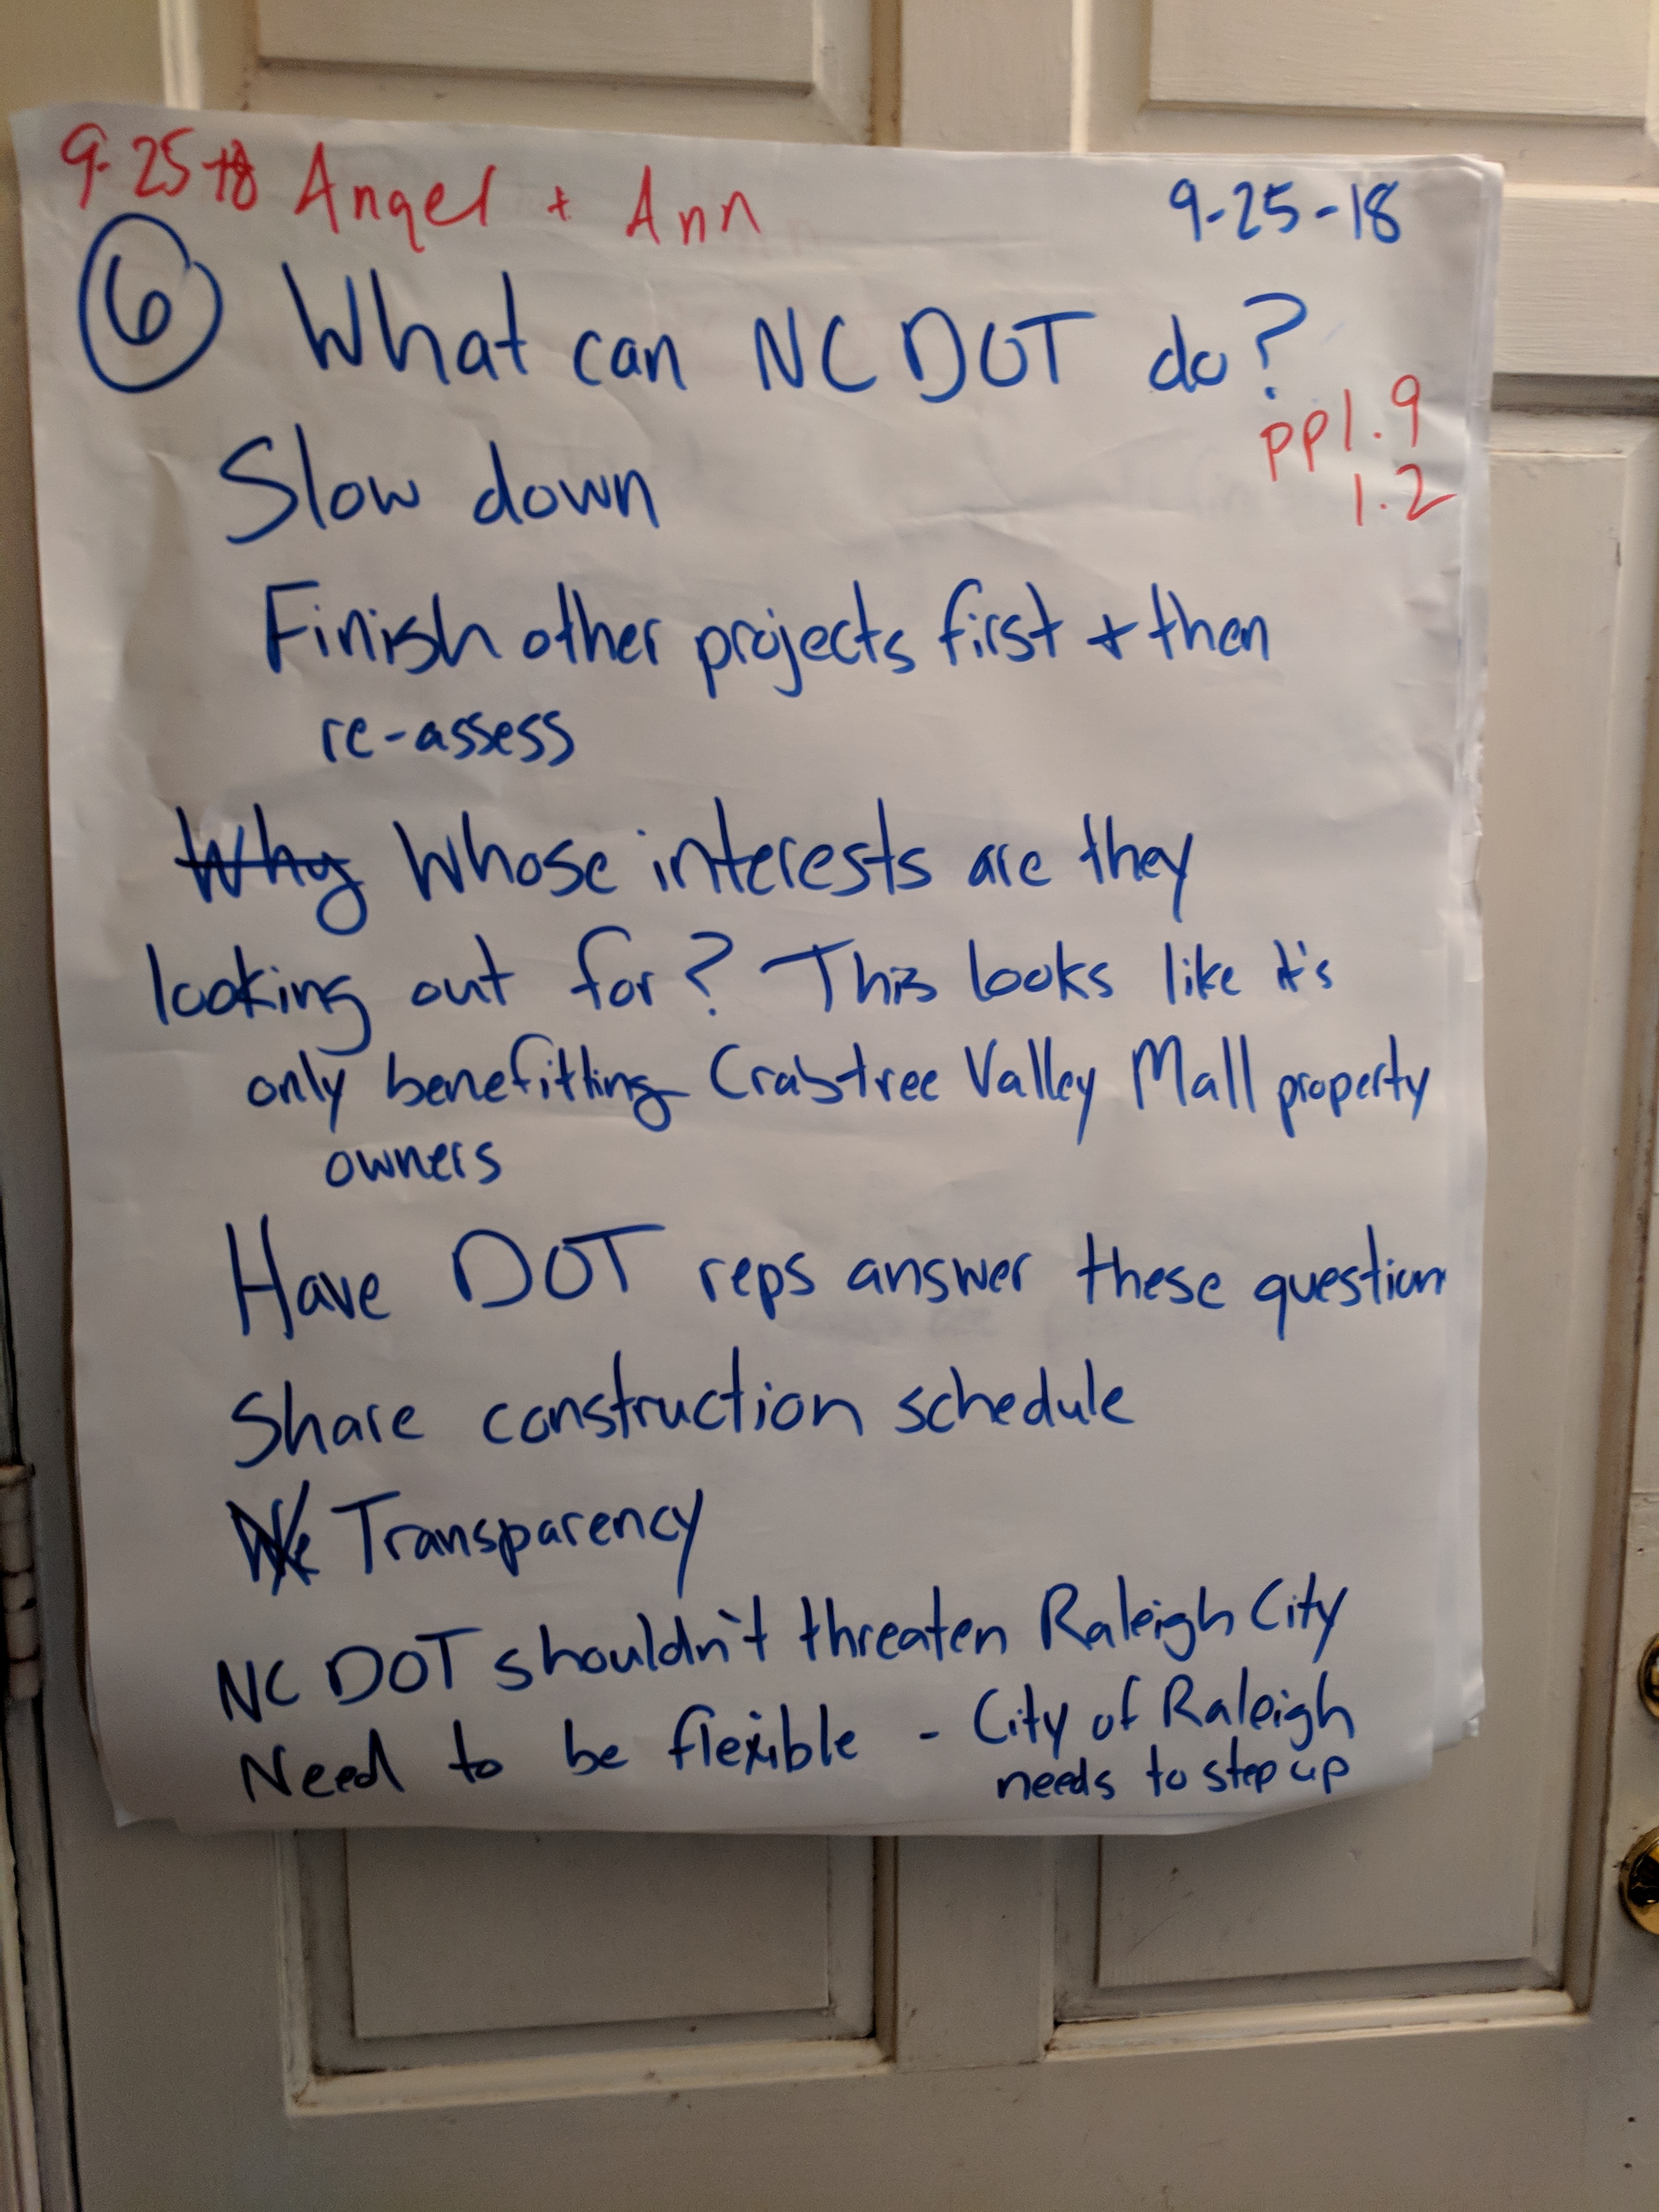 9-25-18 Angel + Ann
9-25-18
6 What can NC DOT do?
pp 1.9
1.2
Slow down
Finish other projects first + then
re-assess
Why Whose interests are they
looking out for? This looks like it's
only benefitting Crabtree Valley Mall property
owners
Have DOT reps answer these question
Share construction schedule
Transparency
NC DOT shouldn't threaten Raleigh City
Need to be flexible - City of Raleigh
needs to step up